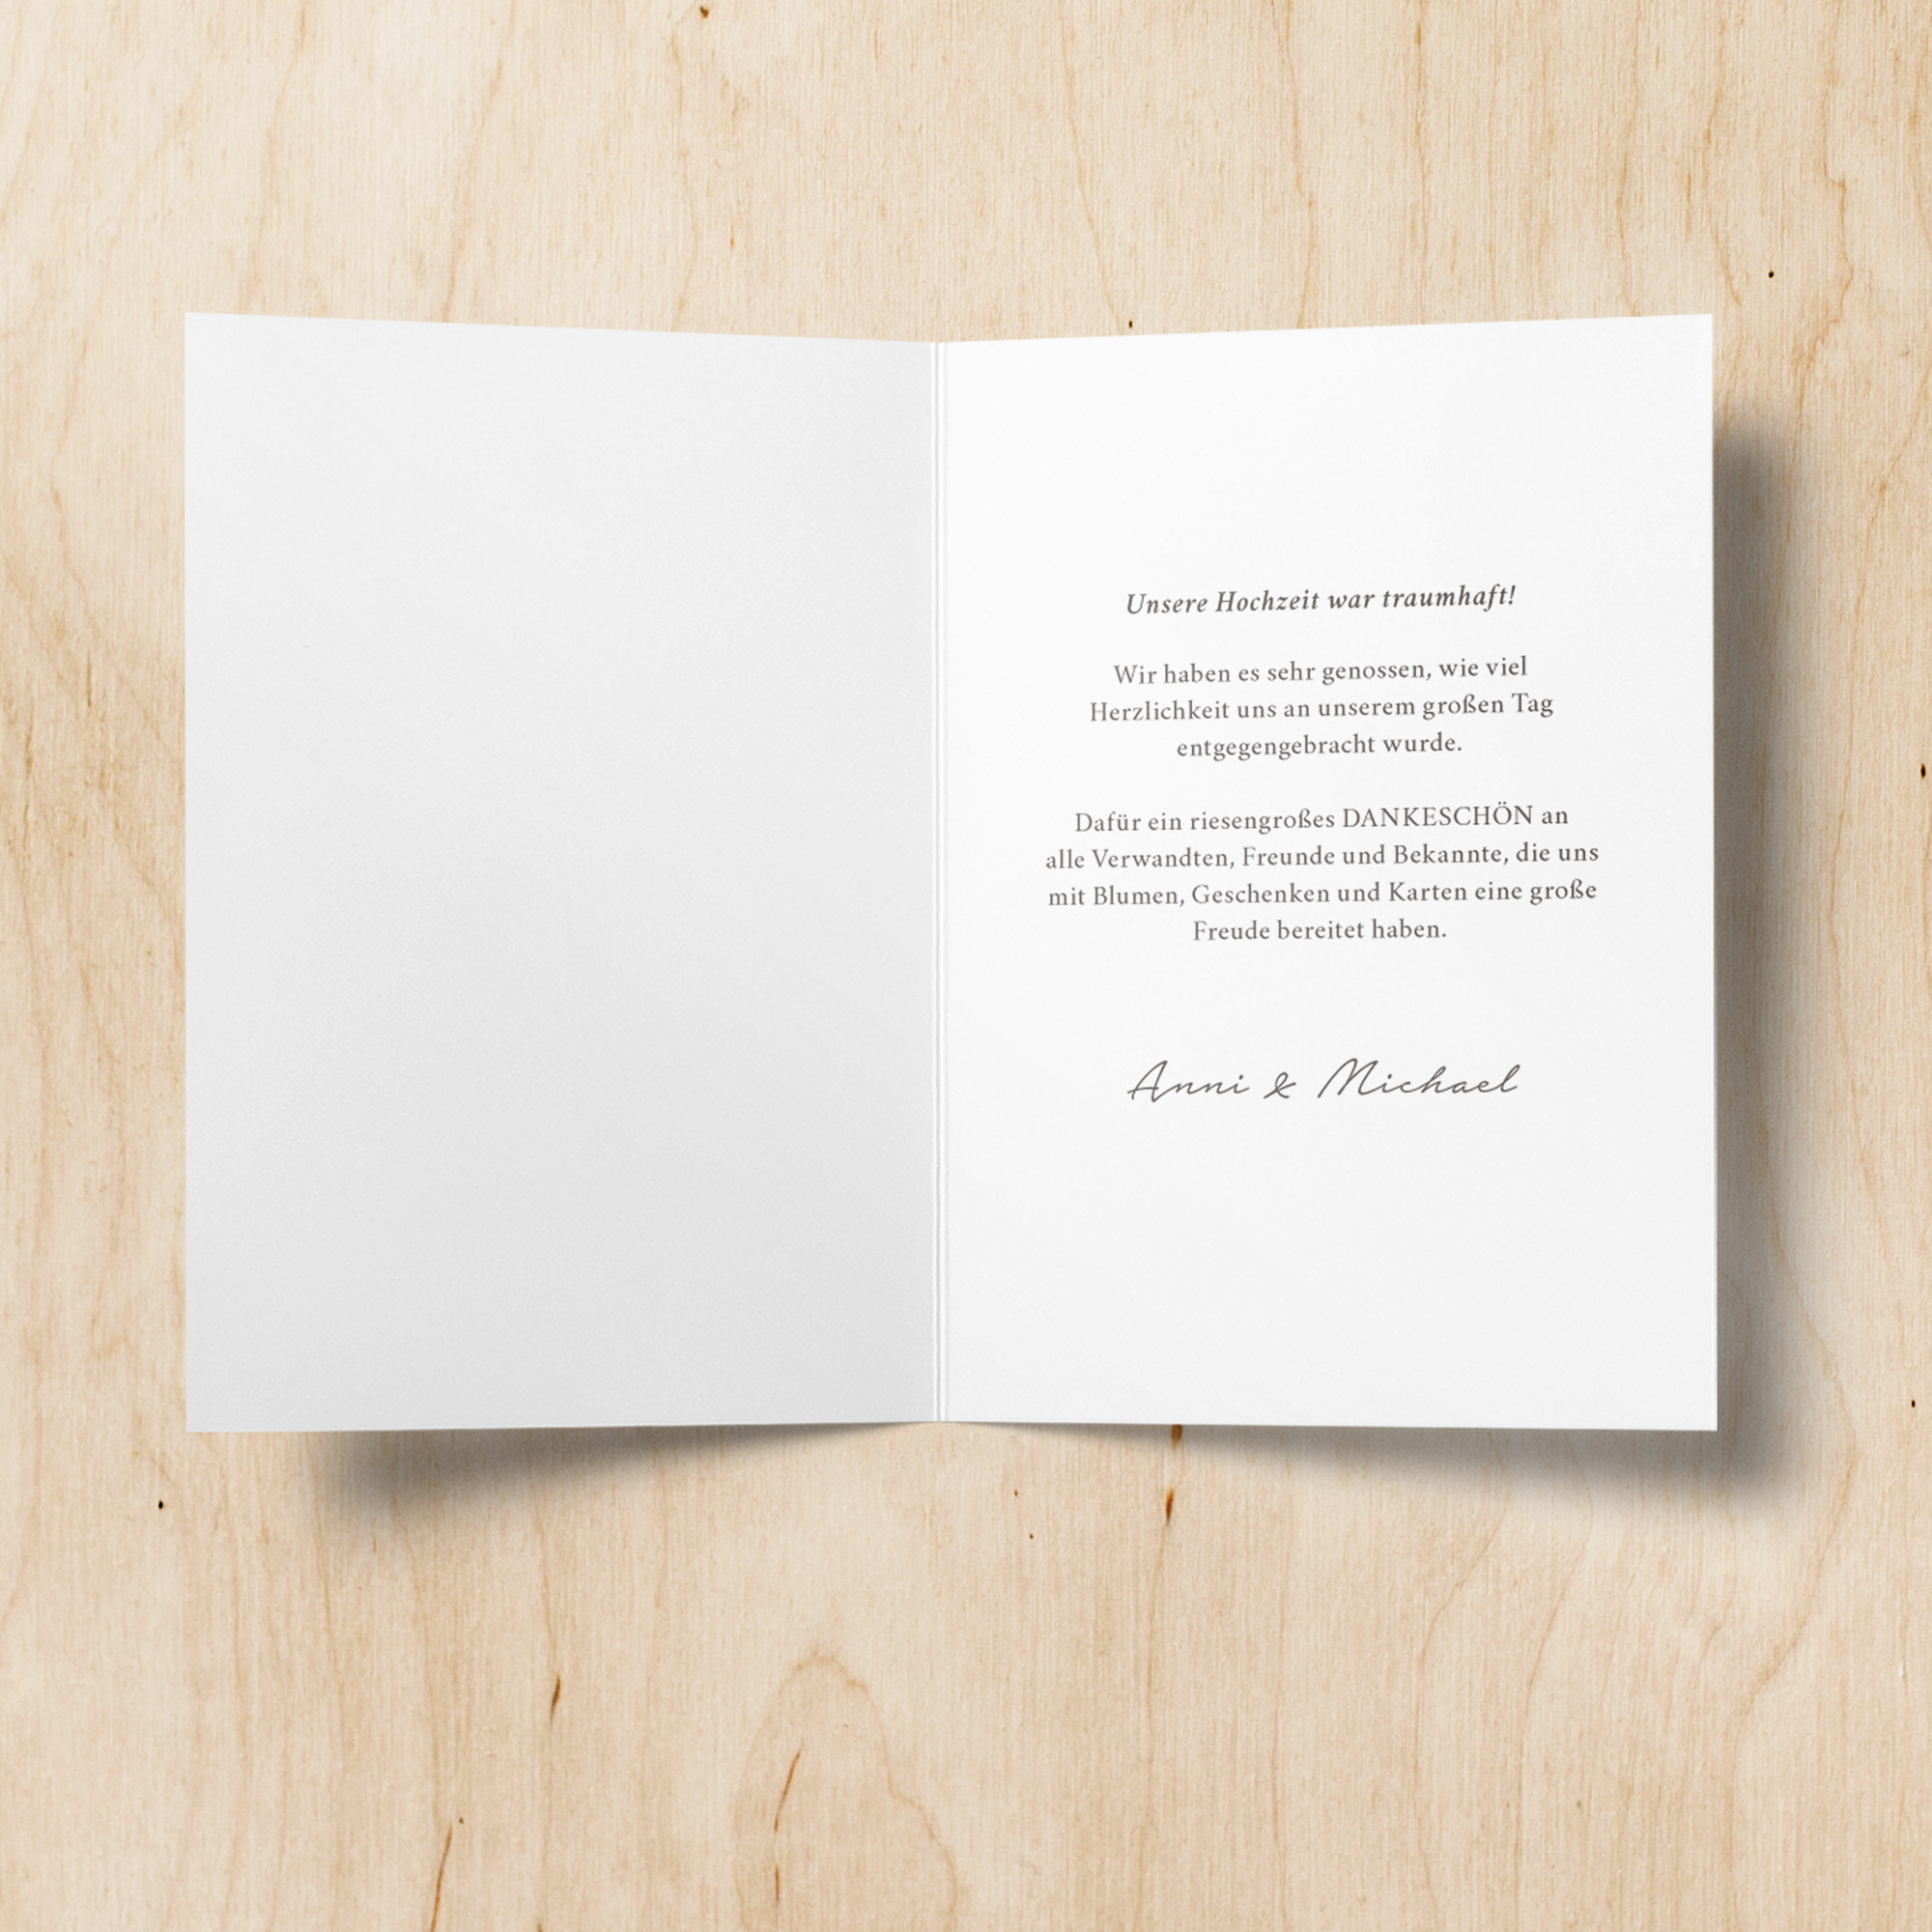 Unsere Hochzeit war traumhaft!
Wir haben es sehr genossen, wie viel
Herzlichkeit uns an unserem großen Tag
entgegengebracht wurde.
Dafür ein riesengroßes DANKESCHÖN an
alle Verwandten, Freunde und Bekannte, die uns
mit Blumen, Geschenken und Karten eine große
Freude bereitet haben.
Anni & Michael